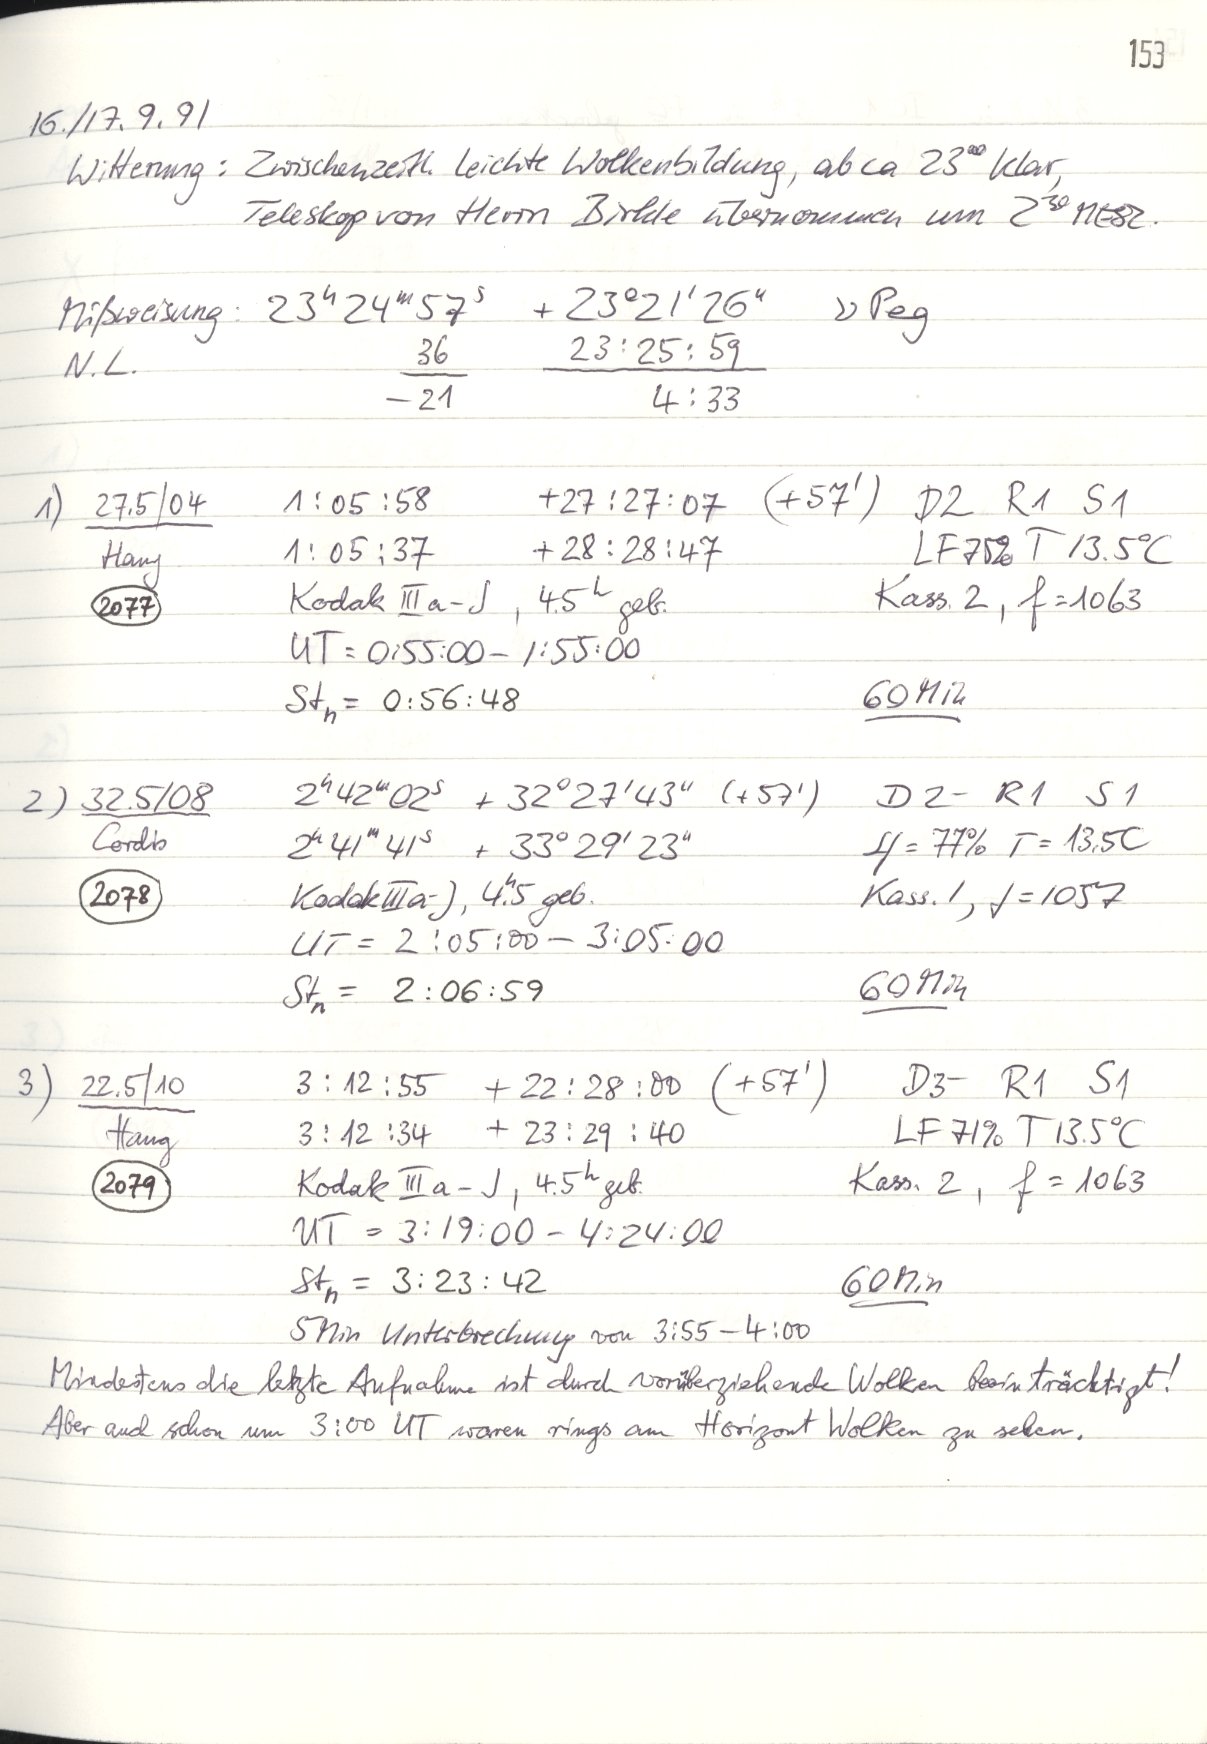 153
16./17.9.91
Witterung: Zwischenzeitl. leichte Wolkenbildung, ab ca 23⁰⁰ klar,
Teleskop von Herrn Birkle übernommen um 2³⁰ MESZ.
Mißweisung: 23ʰ24ᵐ57ˢ + 23°21'26" ν Peg
N.L. 36 23:25:59
-21 4:33
1) 27.5/04 1:05:58 +27:27:07 (+57') D2 R1 S1
Haug 1:05:37 +28:28:47 LF 75% T 13.5°C
2077 Kodak IIIa-J, 4.5ʰ geb. Kass. 2, f=1063
UT = 0:55:00 - 1:55:00
Stₙ = 0:56:48 60 Min
2) 32.5/08 2ʰ42ᵐ02ˢ + 32°27'43" (+57') D2- R1 S1
Cordis 2ʰ41ᵐ41ˢ + 33°29'23" = 77% T = 13.5C
2078 Kodak IIIa-J, 4ʰ.5 geb. Kass. 1, f=1057
UT = 2:05:00 - 3:05:00
Stₙ = 2:06:59 60 Min
3) 22.5/10 3:12:55 + 22:28:00 (+57') D3- R1 S1
Haug 3:12:34 + 23:29:40 LF 71% T 13.5°C
2079 Kodak IIIa-J, 4.5ʰ geb. Kass. 2, f = 1063
UT = 3:19:00 - 4:24:00
Stₙ = 3:23:42 60 Min
5 Min Unterbrechung von 3:55 - 4:00
Mindestens die letzte Aufnahme ist durch vorüberziehende Wolken beeinträchtigt!
Aber auch schon um 3:00 UT waren rings am Horizont Wolken zu sehen.